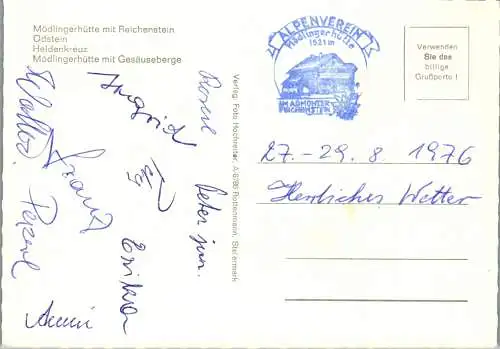 Mödlingerhütte mit Reichenstein
Ödstein
Heldenkreuz
Mödlingerhütte mit Gesäuseberge
ALPENVEREIN
Mödlingerhütte
1521 m
IM ADMONTER
REICHENSTEIN
Verwenden
Sie das
billige
Grußporto!
Verlag: Foto Hochreiter, A 8786 Rottenmann, Steiermark
27.-29.8.1976
Herrliches Wetter
Walter
Franz
Ingrid
Peter jun.
Erika
Anni